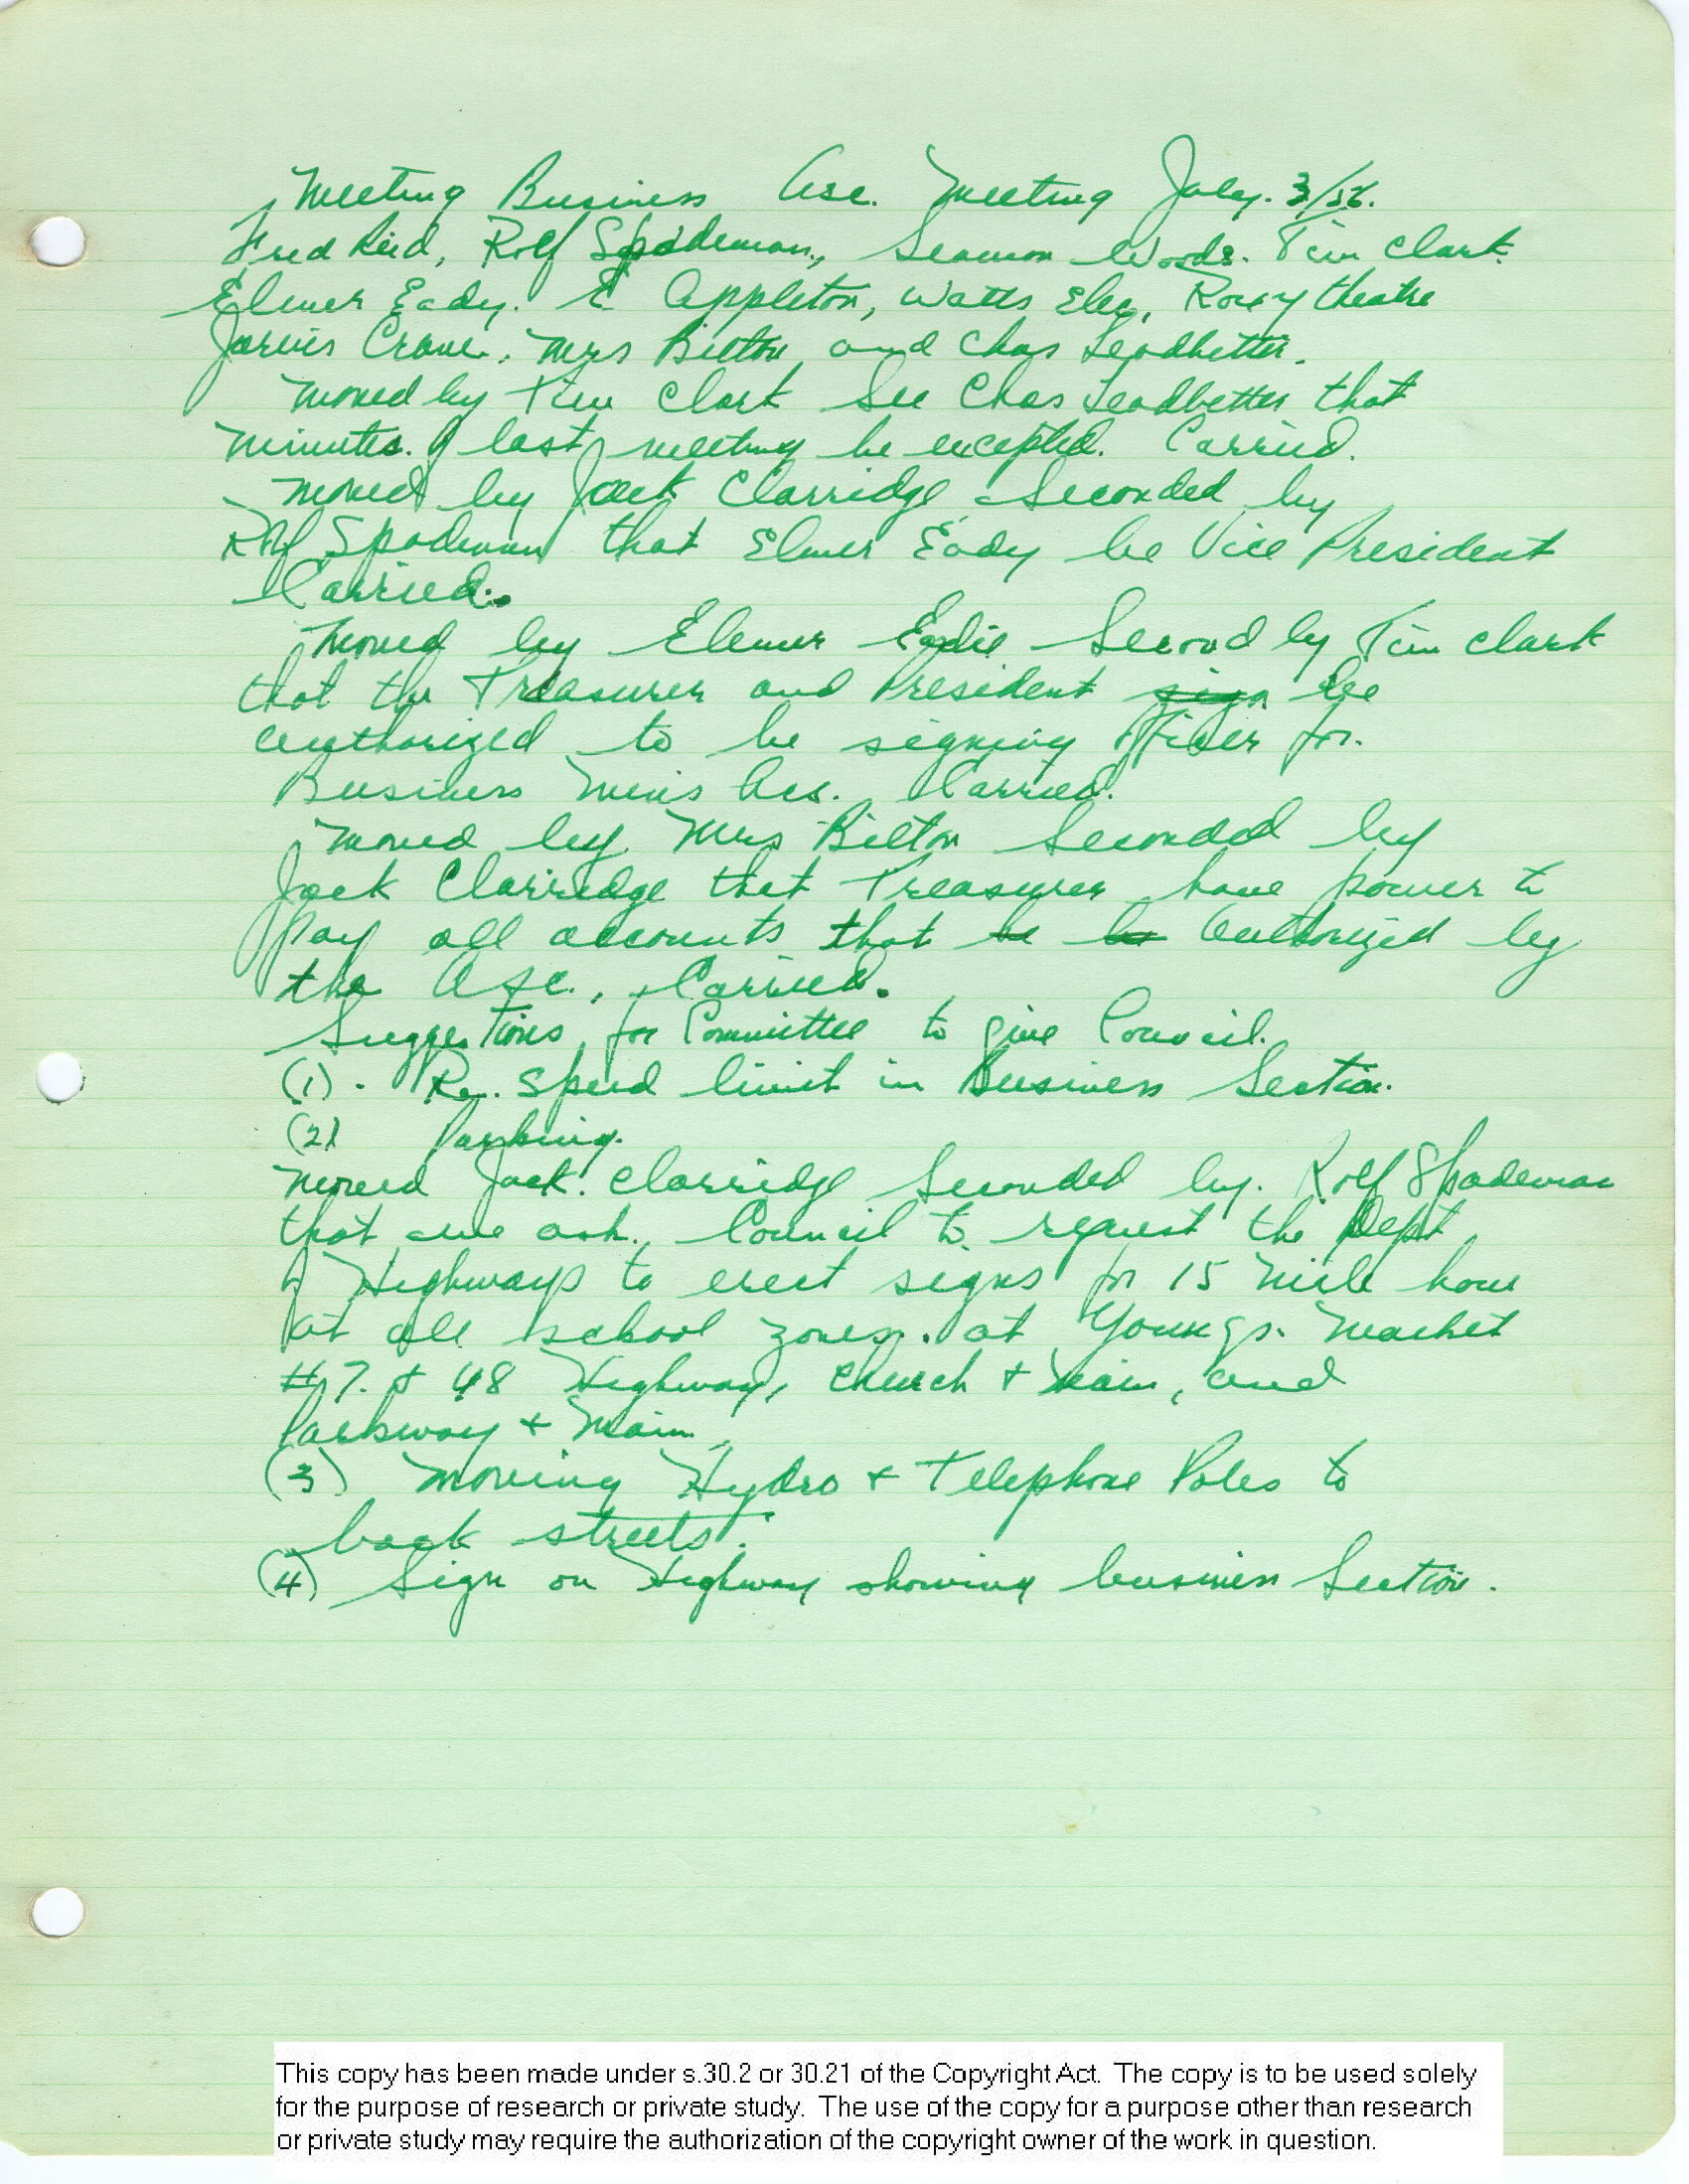 Meeting Business Ass. Meeting July. 3/56.
Fred Reid, Rolf Spademan, Seamon Woods. Tim Clark.
Elmer Eady. E Appleton, Watts Elec, Roxy theatre
Jarvis Crane. Mrs Bilton and Chas Leadbetter.
Moved by Tim Clark Sec Chas Leadbetter that
minutes. of last meeting be excepted. Carried.
Moved by Jack Clarridge Seconded by
Rolf Spademan that Elmer Eady be Vice President
Carried.
Moved by Elemer Eadie Second by Tim Clark
that the Treasurer and President sign be
authorized to be signing officer for.
Business Men's Ass. Carried.
Moved by Mrs Bilton Seconded by
Jack Clarridge that Treasurer have power to
Pay all accounts that be be Authorized by
the Ass., Carried.
Suggestions for Committee to give Council.
(1). Re. Speed limit in Business Section.
(2) Parking.
Moved Jack. Clarridge Seconded by. Rolf Spademan
that we ask. Council to request the Dept
of Highways to erect signs for 15 Mile hour
at all school zones. at Youngs. Market
#7. & 48 Highway, Church + Main, and
Parkway + Main
(3) Moving Hydro + Telephone Poles to
back streets.
(4) Sign on Highway showing business Section.
This copy has been made under s.30.2 or 30.21 of the Copyright Act. The copy is to be used solely
for the purpose of research or private study. The use of the copy for a purpose other than research
or private study may require the authorization of the copyright owner of the work in question.